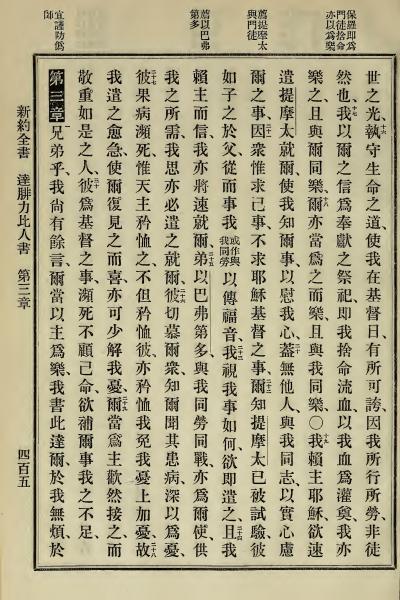 保羅即爲
門徒捨命
亦以爲樂
薦提摩太
與門徒
薦以巴弗
第多
宜謹防僞
師
世之光執守生命之道使我在基督日有所可誇因我所行所勞非徒
十六
然也我以爾之信爲奉獻之祭祀即我捨命流血以我血爲灌奠我亦
十七
樂之且與爾同樂爾亦當爲之而樂且與我同樂○我賴主耶穌欲速
十八
十九
遣提摩太就爾使我知爾事以慰我心蓋無他人與我同志以實心慮
二十
爾之事因衆惟求己事不求耶穌基督之事爾知提摩太已被試驗彼
二十一
二十二
如子之於父從而事我或作與我同勞以傳福音我視我事如何欲即遣之且我
二十三
二十四
賴主而信我亦將速就爾弟以巴弗第多與我同勞同戰亦爲爾使供
二十五
我之所需我思亦必遣之就爾彼切慕爾衆知爾聞其患病深以爲憂
二十六
彼果病瀕死惟天主矜恤之不但矜恤彼亦矜恤我免我憂上加憂故
二十七
二十八
我遣之愈急使爾復見之而喜亦可少解我憂爾當爲主歡然接之而
二十九
敬重如是之人彼爲基督之事瀕死不顧己命欲補爾事我之不足
三十
第三章兄弟乎我尚有餘言爾當以主爲樂我書此達爾於我無煩於
新約全書 達腓力比人書 第三章 四百五